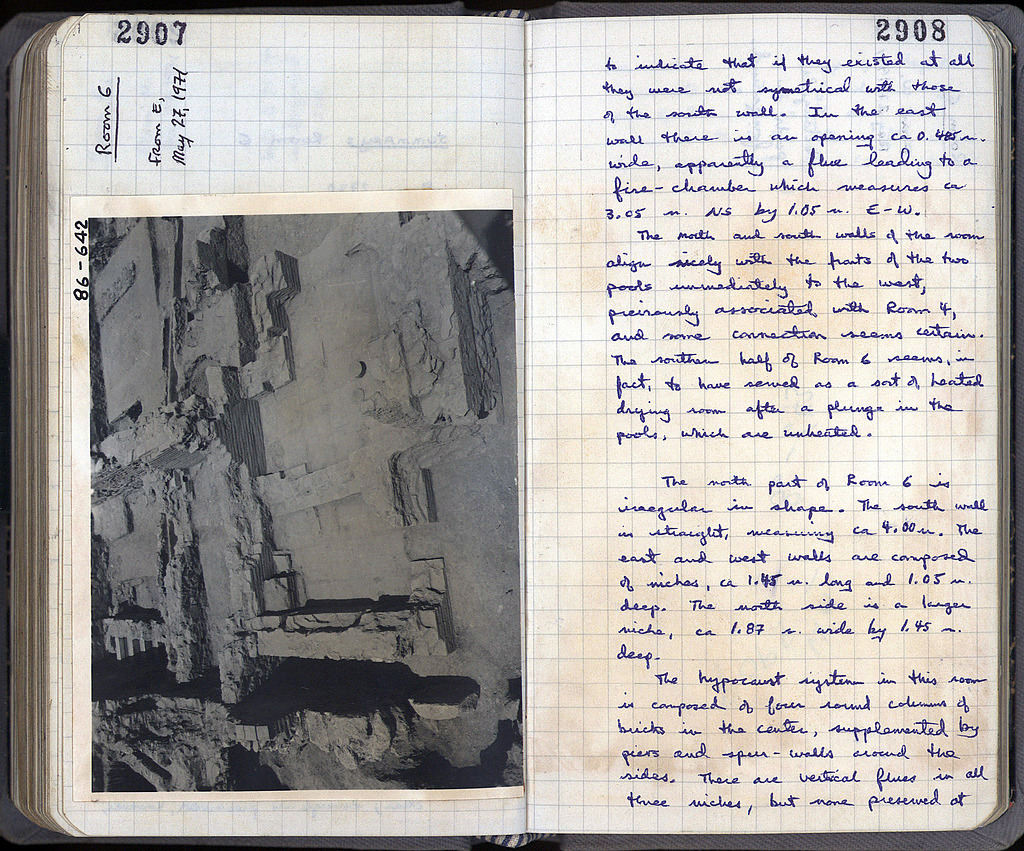 2907
Room 6
From E,
May 27, 1971
86-642
2908
to indicate that if they existed at all
they were not symetrical with those
of the south wall. In the east
wall there is an opening ca 0.485 m.
wide, apparently a flue leading to a
fire-chamber which measures ca
3.05 m. NS by 1.05 m. E-W.
The north and south walls of the room
align nicely with the fronts of the two
pools immediately to the west,
previously associated with Room 4,
and some connection seems certain.
The southern half of Room 6 seems, in
fact, to have served as a sort of heated
drying room after a plunge in the
pools, which are unheated.
The north part of Room 6 is
irregular in shape. The south wall
is straight, measuring ca 4.00 m. The
east and west walls are composed
of niches, ca 1.45 m. long and 1.05 m.
deep. The north side is a larger
niche, ca 1.87 m. wide by 1.45 m.
deep.
The hypocaust system in this room
is composed of four round columns of
bricks in the center, supplemented by
piers and spur-walls around the
sides. There are vertical flues in all
three niches, but none preserved at